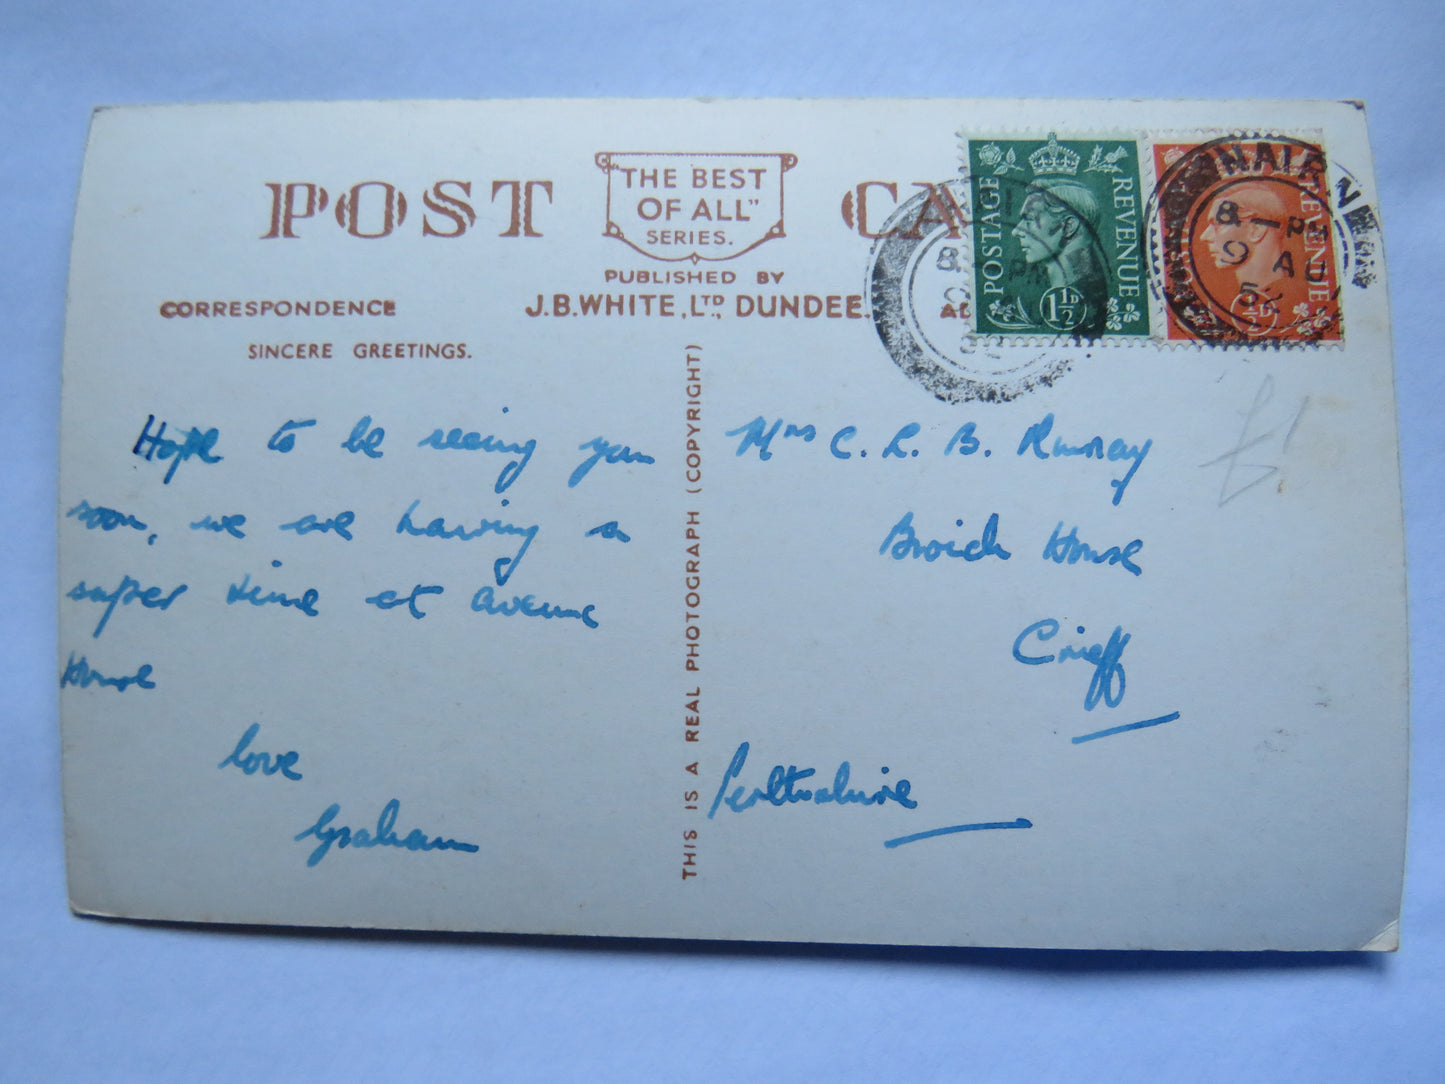 POST CA
"THE BEST
OF ALL"
SERIES.
PUBLISHED BY
J.B. WHITE, LTD., DUNDEE.
CORRESPONDENCE
AD
SINCERE GREETINGS.
POSTAGE REVENUE
1½D
REVENUE
½D
NAIRN
8 - PM
9 AU
52
THIS IS A REAL PHOTOGRAPH (COPYRIGHT)
Hope to be seeing you
soon, we are having a
super time at avenue
House
love
Graham
Mrs C. L. B. Murray
Broich House
Crieff
Perthshire
£1